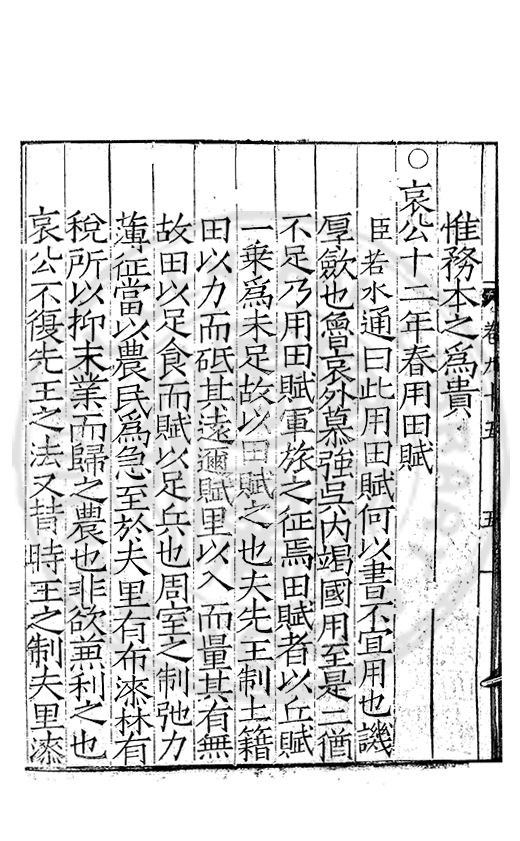 卷九十五 五
惟務本之爲貴
○哀公十二年春用田賦
臣若水通曰此用田賦何以書不宜用也譏
厚斂也魯哀外慕強吳内竭國用至是二猶
不足乃用田賦軍旅之征焉田賦者以丘賦
一乗爲未足故以田賦之也夫先王制土籍
田以力而砥其逺邇賦里以入而量其有無
故田以足食而賦以足兵也周室之制弛力
薄征當以農民爲急至於夫里有布漆林有
稅所以抑末業而歸之農也非欲兼利之也
哀公不復先王之法又昔時王之制夫里漆